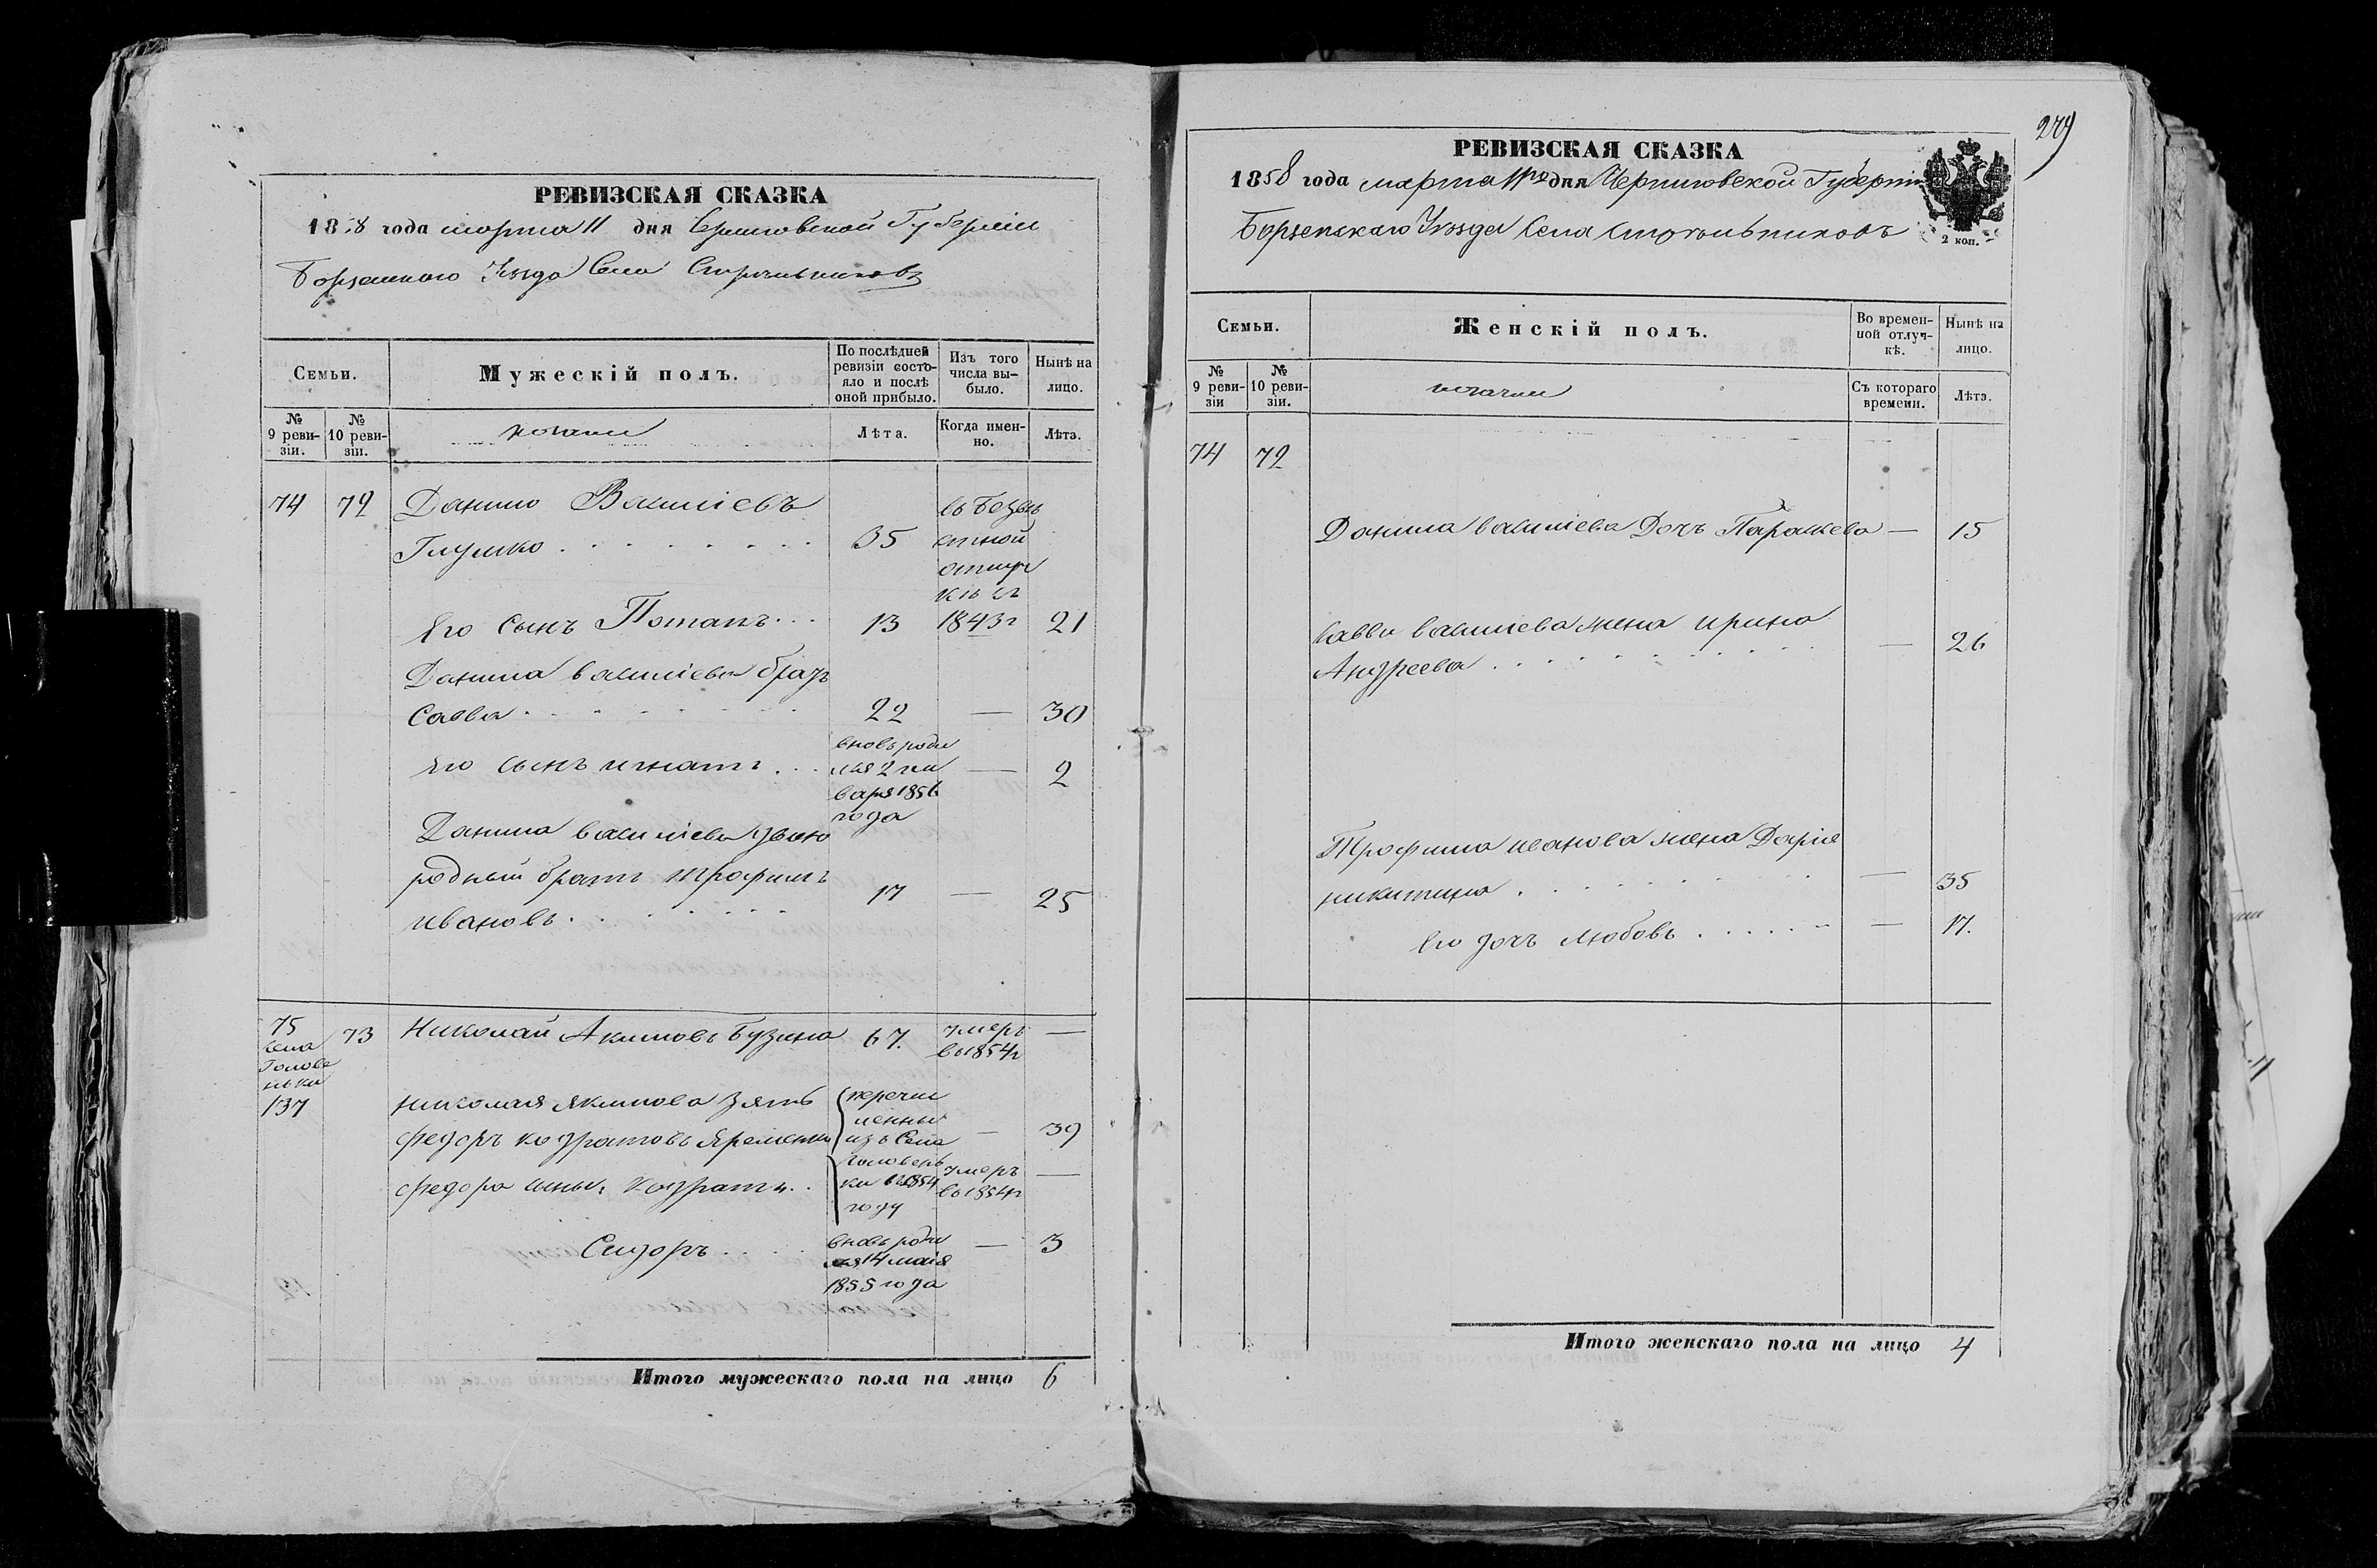 РЕВИЗСКАЯ СКАЗКА
1858 года марта 11 дня Черниговской Губерніи
Борзенскаго Уѣзда Села Стрельниковъ
Семьи.
Мужескій полъ.
По послѣдней ревизіи состояло и послѣ оной прибыло.
Изъ того числа выбыло.
Нынѣ на лицо.
№ 9 ревизіи.
№ 10 ревизіи.
Лѣта.
Когда именно.
Лѣтэ.
74 72 Данило Василіевъ
Глушко 35 въ безвѣстной отлучкѣ съ 1843г
Его сынъ Потапъ 13 21
Данила Василіева братъ
Савва 22 — 30
Его сынъ Игнатъ вновь родился 2 генваря 1856 года — 2
Данила Василіева двою
родный братъ Трофимъ
Ивановъ 17 — 25
75 73 Николай Акимовъ Бузина 67. умеръ в 1854г —
Села
137
Николая Якимова зять
Федоръ Кодратовъ Яременко перечисленный изъ Села 1854 году — 39
Федора сыны: Кодратъ умеръ в 1854г —
Сидоръ вновь родился 14 маія 1855 года — 3
Итого мужескаго пола на лицо 6
279
РЕВИЗСКАЯ СКАЗКА
1858 года марта 11го дня Черниговской Губерніи
Борзенскаго Уѣзда Села Стрельниковъ
2 коп.
Семьи.
Женскій полъ.
Во временной отлучкѣ.
Нынѣ на лицо.
№ 9 ревизіи
№ 10 ревизіи.
Съ котораго времени.
Лѣтэ.
74 72
Данила Василіева Дочь Параскева — 15
Саввы Василіева жена Ирина
Андреева — 26
Трофима Иванова жена Дарія
Никитина — 35
Его дочь Любовь — 17.
Итого женскаго пола на лицо 4